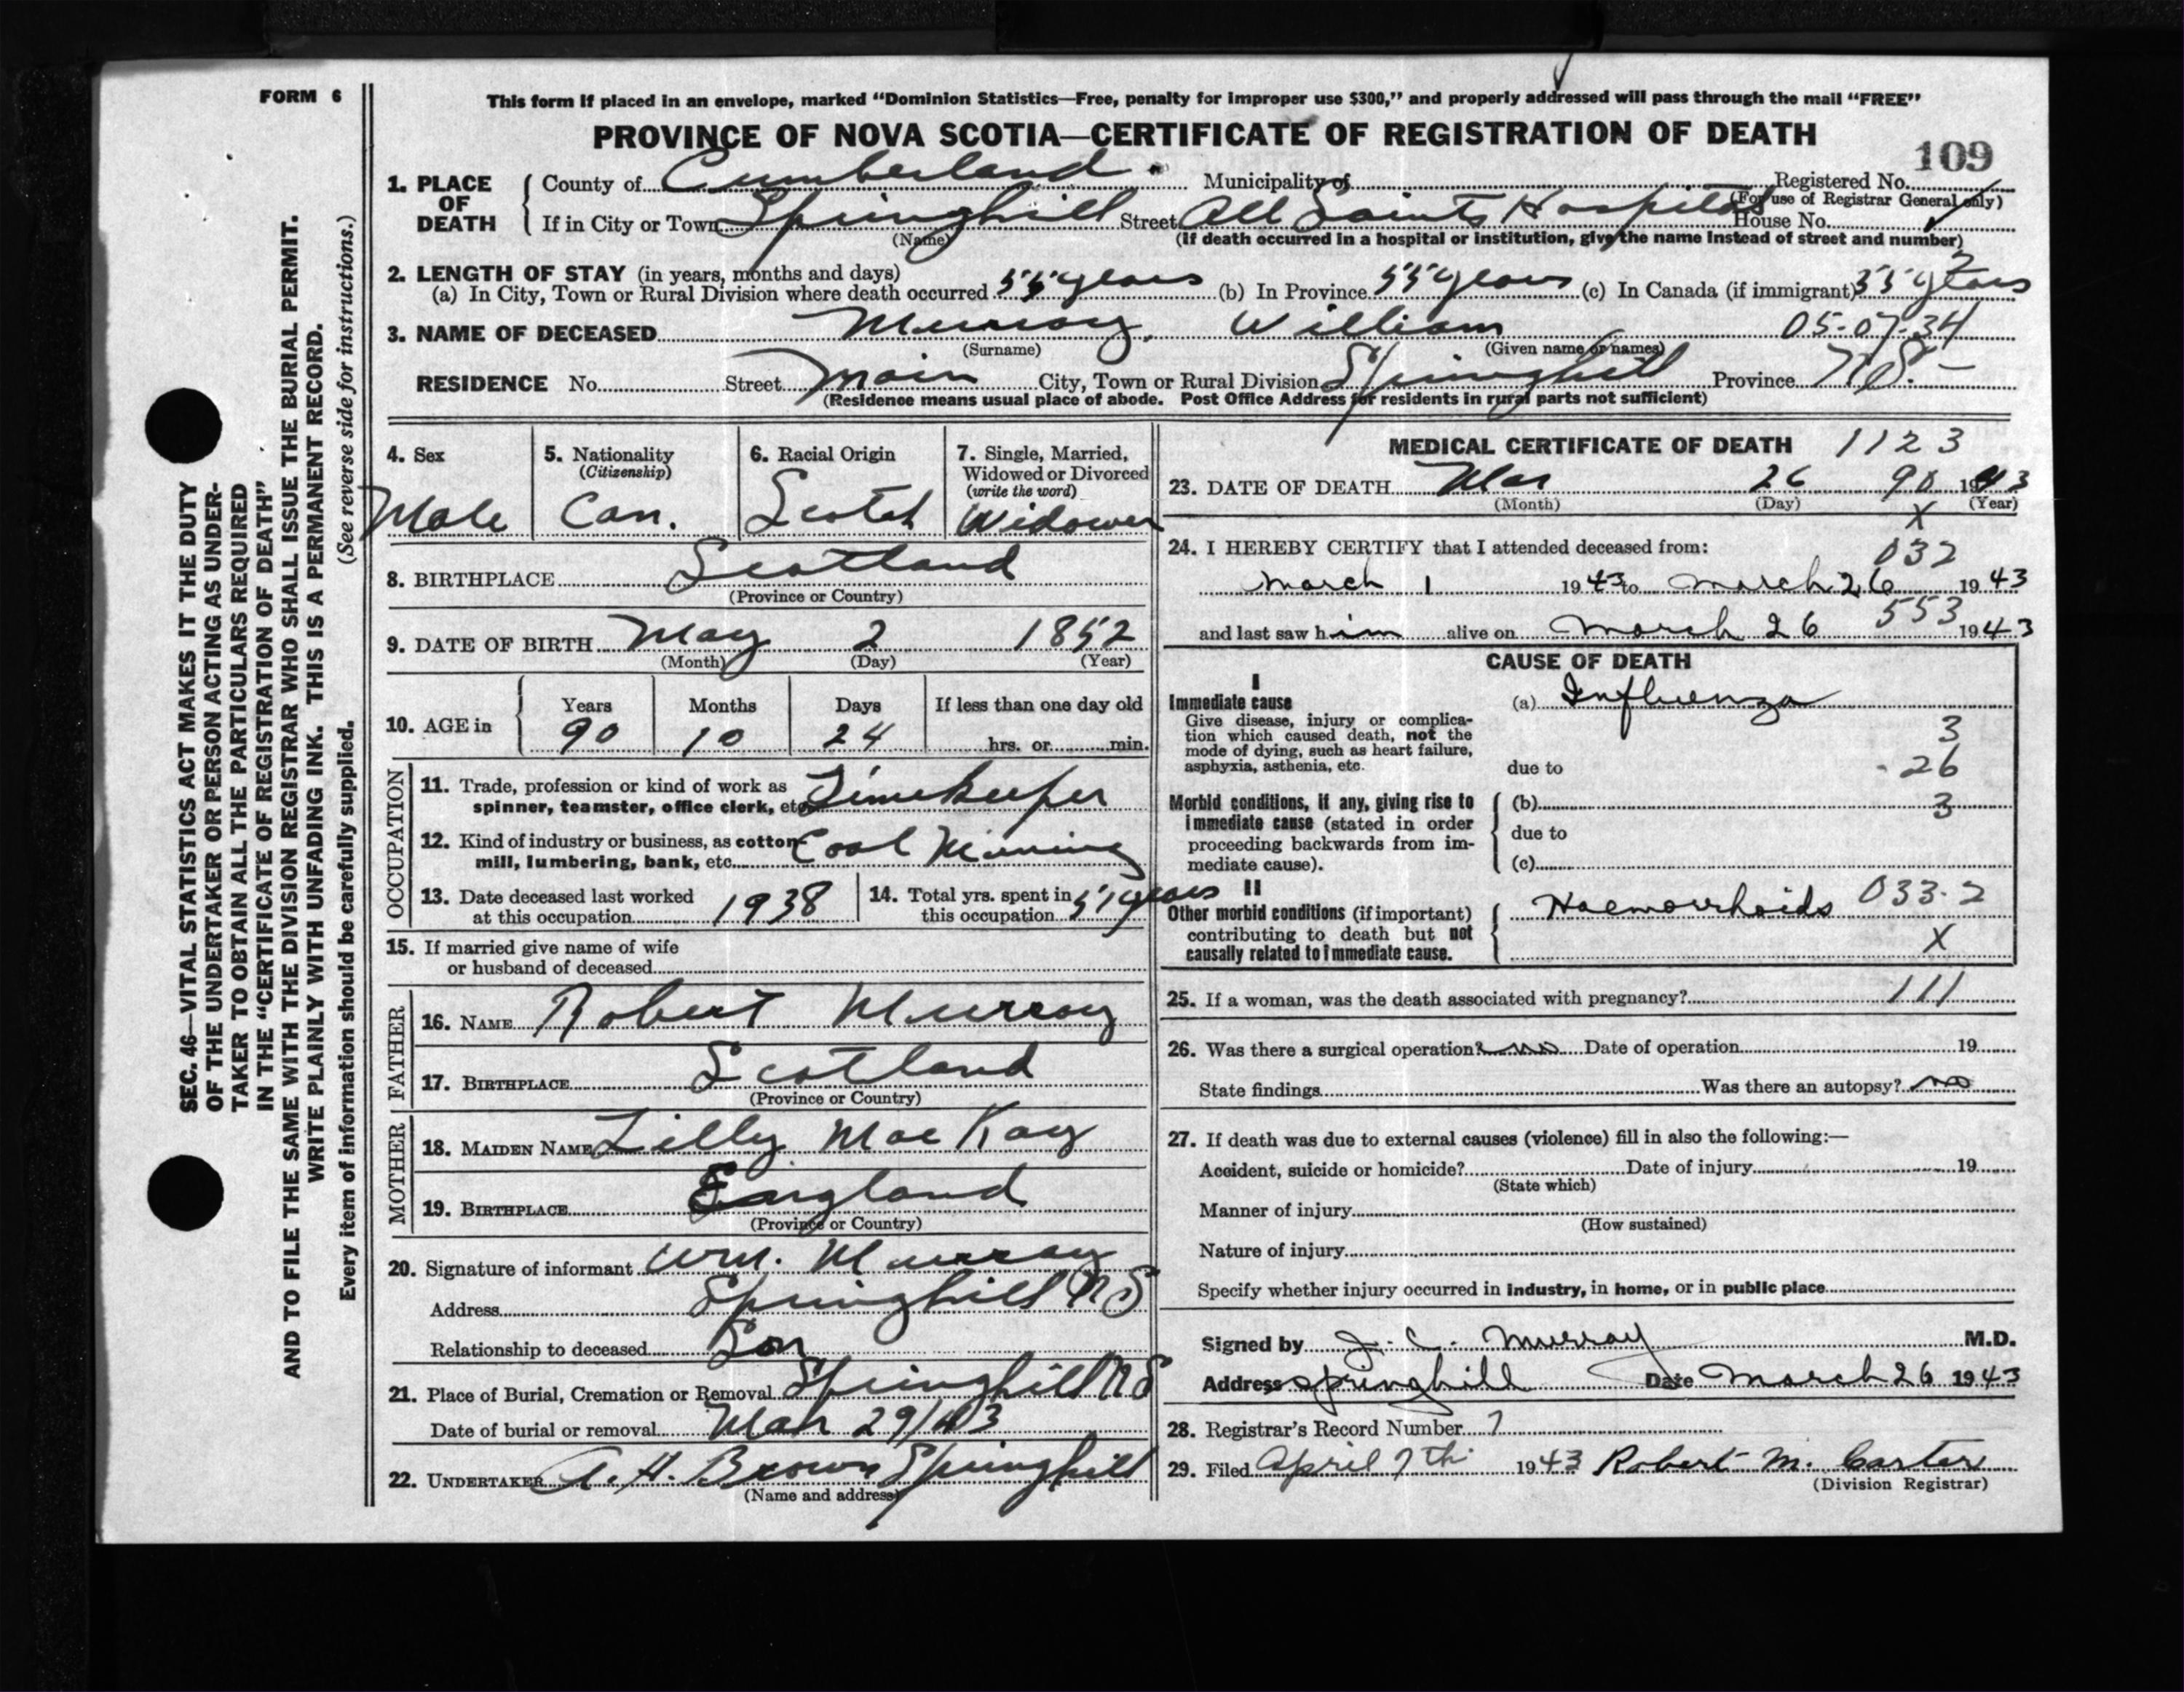 FORM 6
This form if placed in an envelope, marked "Dominion Statistics—Free, penalty for improper use $300," and properly addressed will pass through the mail "FREE"
PROVINCE OF NOVA SCOTIA—CERTIFICATE OF REGISTRATION OF DEATH
109
1. PLACE OF DEATH { County of Cumberland Municipality of Registered No.
(For use of Registrar General only)
If in City or Town Springhill Street All Saints Hospital House No.
(Name) (If death occurred in a hospital or institution, give the name instead of street and number)
2. LENGTH OF STAY (in years, months and days)
(a) In City, Town or Rural Division where death occurred 55 years (b) In Province 55 years (c) In Canada (if immigrant) 55 years
3. NAME OF DECEASED Murray, William 05-07-34
(Surname) (Given name or names)
RESIDENCE No. Street Main City, Town or Rural Division Springhill Province N.S.
(Residence means usual place of abode. Post Office Address for residents in rural parts not sufficient)
4. Sex
Male
5. Nationality
(Citizenship)
Can.
6. Racial Origin
Scotch
7. Single, Married,
Widowed or Divorced
(write the word)
Widower
8. BIRTHPLACE Scotland
(Province or Country)
9. DATE OF BIRTH May 2 1852
(Month) (Day) (Year)
10. AGE in { Years Months Days If less than one day old
90 10 24 hrs. or min.
OCCUPATION
11. Trade, profession or kind of work as
spinner, teamster, office clerk, etc. Timekeeper
12. Kind of industry or business, as cotton
mill, lumbering, bank, etc. Coal Mining
13. Date deceased last worked
at this occupation 1938
14. Total yrs. spent in
this occupation 51 years
15. If married give name of wife
or husband of deceased
FATHER
16. NAME Robert Murray
17. BIRTHPLACE Scotland
(Province or Country)
MOTHER
18. MAIDEN NAME Lilly MacKay
19. BIRTHPLACE England
(Province or Country)
20. Signature of informant Wm. Murray
Address Springhill NS
Relationship to deceased Son
21. Place of Burial, Cremation or Removal Springhill NS
Date of burial or removal Mar 29/43
22. UNDERTAKER A. H. Brown Springhill
(Name and address)
MEDICAL CERTIFICATE OF DEATH 1123
23. DATE OF DEATH Mar 26 90 1943
(Month) (Day) (Year)
X
24. I HEREBY CERTIFY that I attended deceased from:
032
March 1 1943 to March 26 1943
553
and last saw him alive on March 26 1943
CAUSE OF DEATH
I
Immediate cause
Give disease, injury or complica-
tion which caused death, not the
mode of dying, such as heart failure,
asphyxia, asthenia, etc.
(a) Influenza
3
due to 26
Morbid conditions, if any, giving rise to
immediate cause (stated in order
proceeding backwards from im-
mediate cause).
(b) 3
due to
(c)
II
Other morbid conditions (if important)
contributing to death but not
causally related to immediate cause.
Haemorrhoids 033-2
X
25. If a woman, was the death associated with pregnancy? 111
26. Was there a surgical operation? no Date of operation 19
State findings Was there an autopsy? no
27. If death was due to external causes (violence) fill in also the following:—
Accident, suicide or homicide? Date of injury 19
(State which)
Manner of injury
(How sustained)
Nature of injury
Specify whether injury occurred in industry, in home, or in public place
Signed by J. C. Murray M.D.
Address Springhill Date March 26 1943
28. Registrar's Record Number 7
29. Filed April 7th 1943 Robert M. Carter
(Division Registrar)
SEC. 46—VITAL STATISTICS ACT MAKES IT THE DUTY
OF THE UNDERTAKER OR PERSON ACTING AS UNDER-
TAKER TO OBTAIN ALL THE PARTICULARS REQUIRED
IN THE "CERTIFICATE OF REGISTRATION OF DEATH"
AND TO FILE THE SAME WITH THE DIVISION REGISTRAR WHO SHALL ISSUE THE BURIAL PERMIT.
WRITE PLAINLY WITH UNFADING INK. THIS IS A PERMANENT RECORD.
Every item of information should be carefully supplied. (See reverse side for instructions.)